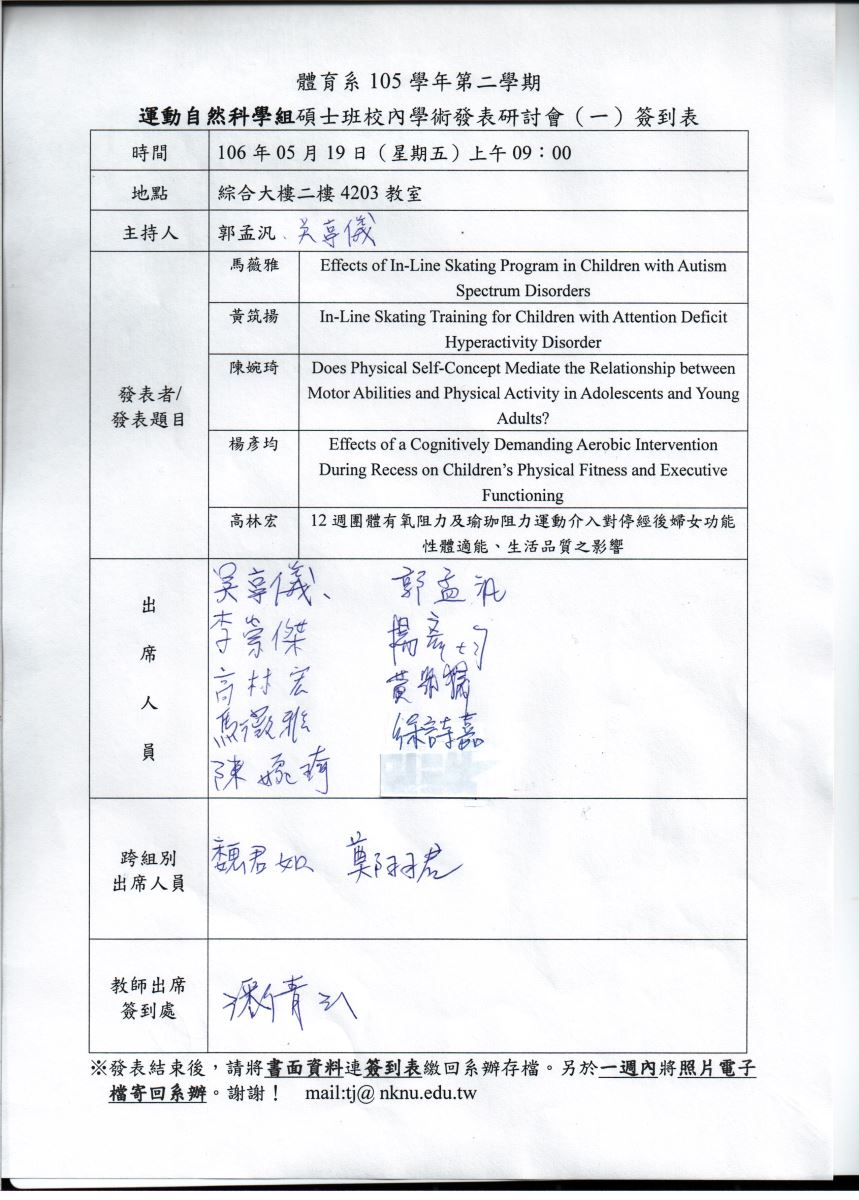 體育系 105 學年第二學期
運動自然科學組碩士班校內學術發表研討會（一）簽到表
時間 106 年 05 月 19 日（星期五）上午 09：00
地點 綜合大樓二樓 4203 教室
主持人 郭孟汎、吳享儀
發表者/
發表題目
馬薇雅 Effects of In-Line Skating Program in Children with Autism
Spectrum Disorders
黃筑揚 In-Line Skating Training for Children with Attention Deficit
Hyperactivity Disorder
陳婉琦 Does Physical Self-Concept Mediate the Relationship between
Motor Abilities and Physical Activity in Adolescents and Young
Adults?
楊彥均 Effects of a Cognitively Demanding Aerobic Intervention
During Recess on Children’s Physical Fitness and Executive
Functioning
高林宏 12 週團體有氧阻力及瑜珈阻力運動介入對停經後婦女功能
性體適能、生活品質之影響
出席人員
吳享儀、 郭孟汎
李崇傑 楊彥均
高林宏 黃筑揚
馬薇雅 徐詩嘉
陳婉琦
跨組別
出席人員
魏君如 鄭羽君
教師出席
簽到處
潘倩玉
※發表結束後，請將書面資料連簽到表繳回系辦存檔。另於一週內將照片電子
檔寄回系辦。謝謝！ mail:tj@ nknu.edu.tw